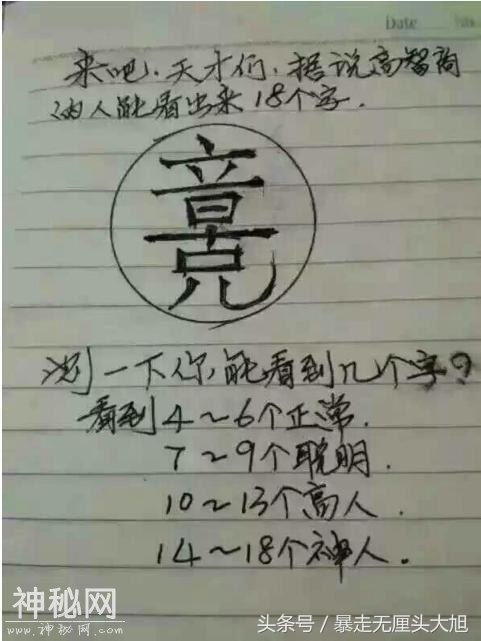 Date No.
来吧.天才们.据说高智商
的人能看出来18个字.
测一下你,能看到几个字?
看到4~6个正常.
7~9个聪明.
10~13个高人.
14~18个神人.
神秘网
www.shenmiw.com
头条号/暴走无厘头大旭